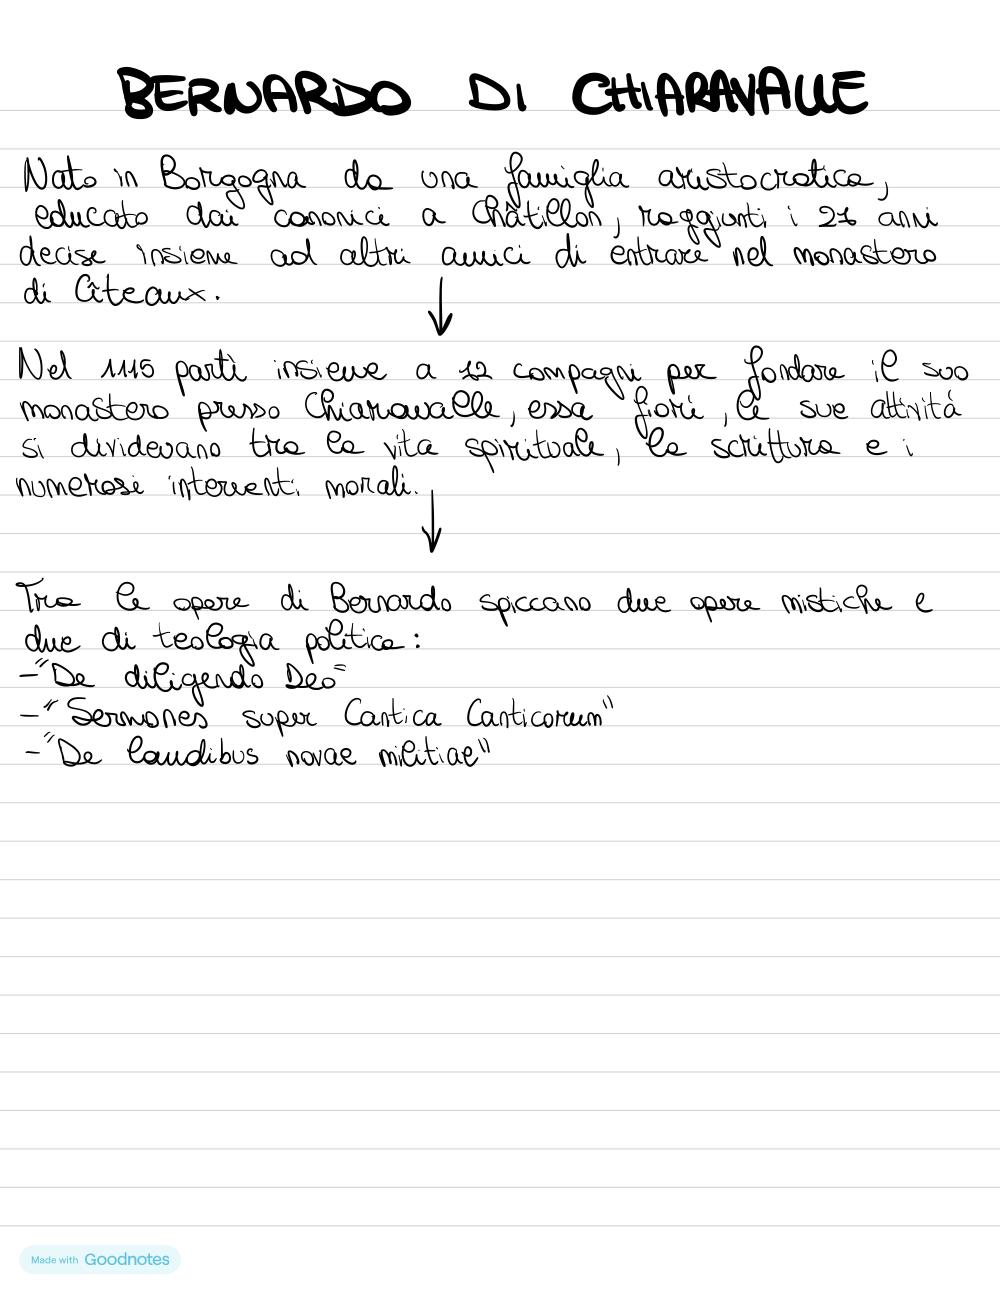 BERNARDO DI CHIARAVALLE
Nato in Borgogna da una famiglia aristocratica,
educato dai canonici a Châtillon, raggiunti i 21 anni
decise insieme ad altri amici di entrare nel monastero
di Cîteaux.
Nel 1115 partì insieme a 12 compagni per fondare il suo
monastero presso Chiaravalle, essa fiorì, le sue attività
si dividevano tra la vita spirituale, la scrittura e i
numerosi interventi morali.
Tra le opere di Bernardo spiccano due opere mistiche e
due di teologia politica:
-"De diligendo Deo"
-"Sermones super Cantica Canticorum"
-"De laudibus novae militiae"
Made with Goodnotes